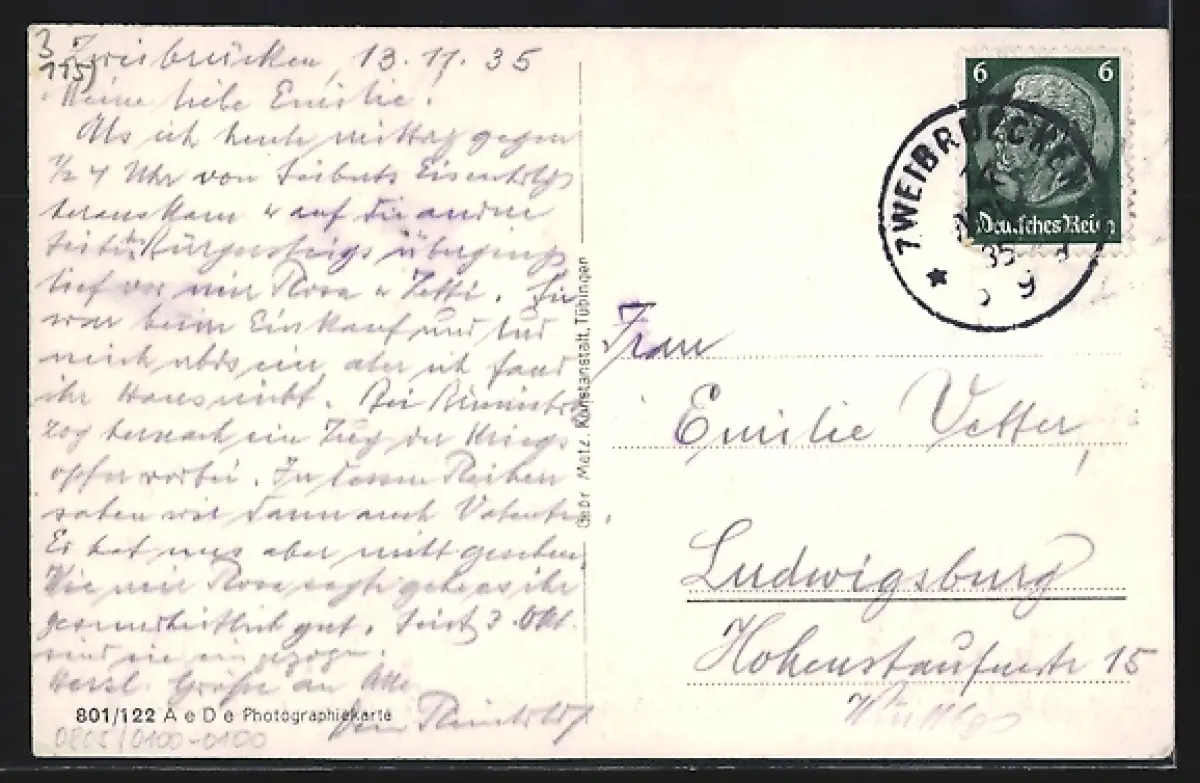 3
115)
Zweibrücken, 13.11.35
Meine liebe Emilie!
Als ich heute mittag gegen
1/2 4 Uhr von Seiberts Eisenhdlg
herauskam u auf die andere
Seite des Bürgersteigs überging
lief vor mir Rosa u . Sie
war beim Einkauf und lud
mich ein, aber ich fand
ihr Haus nicht. Bei
zog hernach ein Zug der Kriegs
opfer vorbei. In dessen Reihen
sahen wir dann auch
Er hat uns aber nicht gesehen
Wie mir Rosa sagte gehe es ihr
gesundheitlich gut. Seit 3. Okt.
sind sie eingezogen.
Herzl. Grüße an Alle
Dein Reinhold
801/122 AeDe Photographiekarte
0205/0100-0100
Gebr. Metz, Kunstanstalt, Tübingen
6 6
Deutsches Reich
ZWEIBRUECKEN
35
9
Frau
Emilie Vetter,
Ludwigsburg
Hohenstaufenstr 15
Württbg